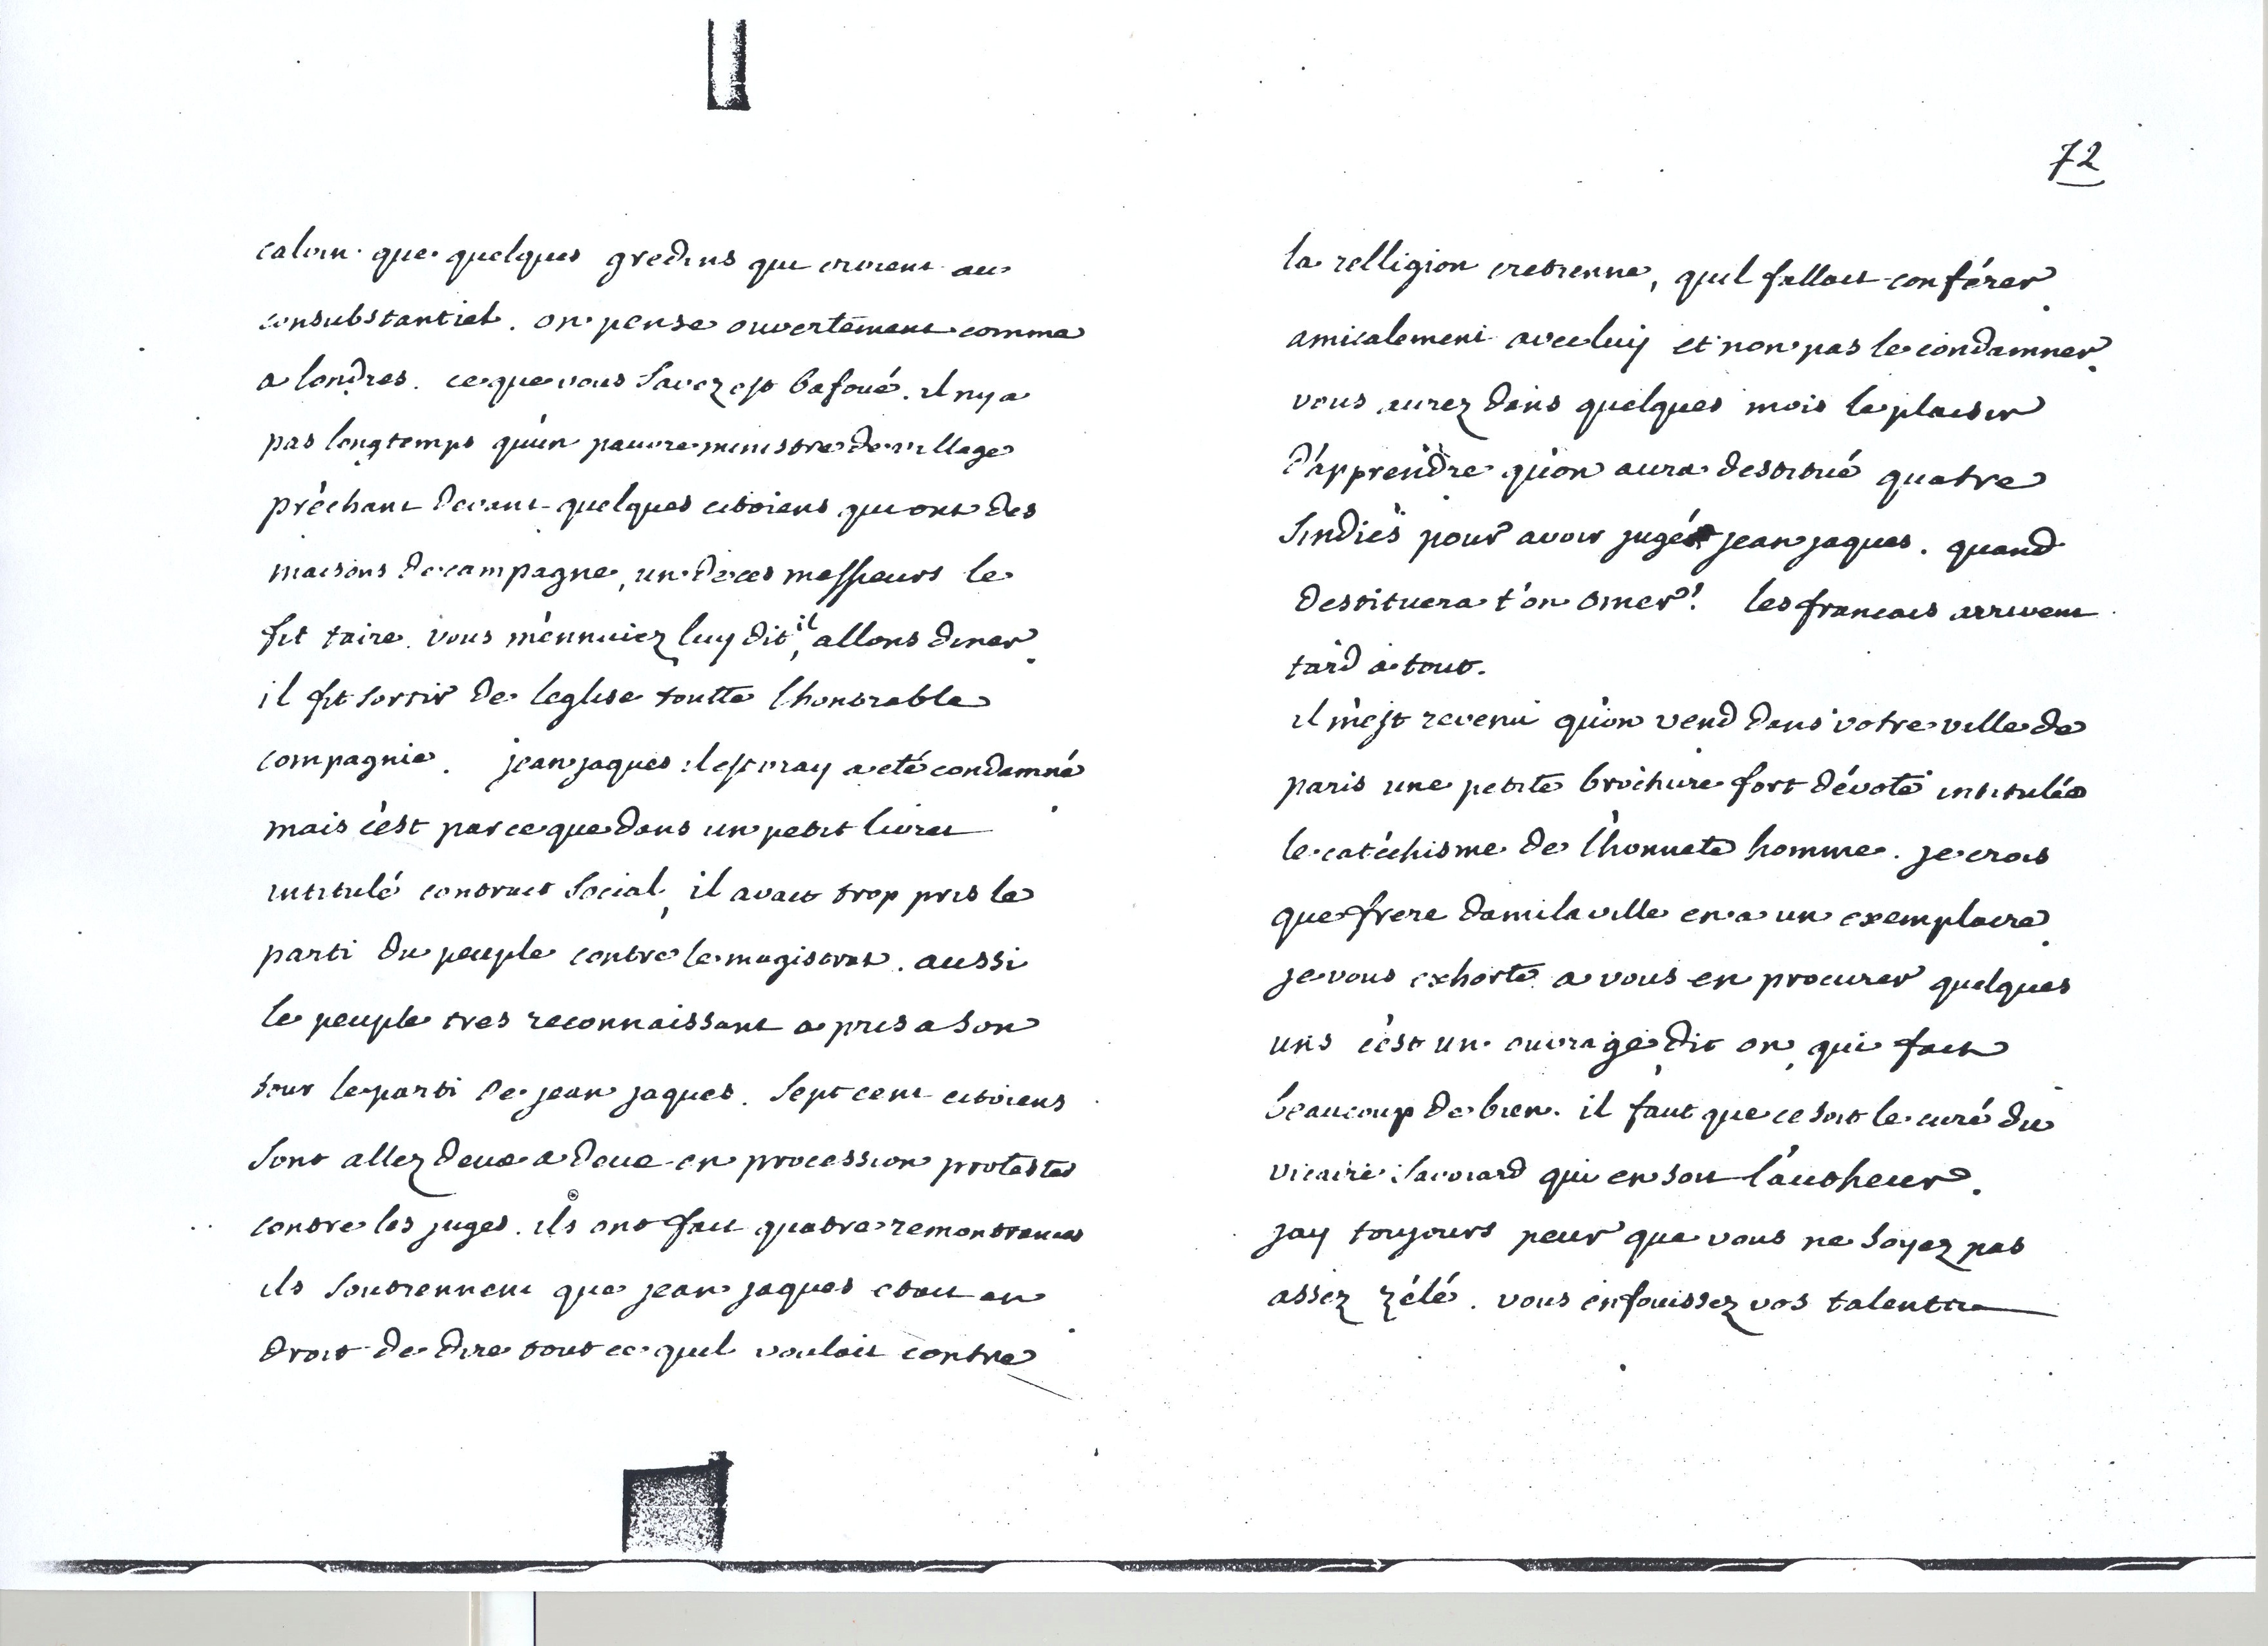 calvin que quelques gredins qui croient au
consubstantiel. on pense ouvertement comme
a londres. ce que vous savez est bafoué. il ny a
pas longtemps qu'un pauvre ministre de village
prèchant devant quelques citoiens qui ont des
maisons de campagne, un de ces messieurs le
fit taire. vous m'ennuiez luy dit il, allons diner.
il fit sortir de leglise toutte lhonorable
compagnie. jean jaques il est vray a eté condamné
mais c'est parce que dans un petit livret
intitulé contract social, il avait trop pris le
parti du peuple contre le magistrat. aussi
le peuple tres reconnaissant a pris a son
tour le parti de jean jaques. sept cent citoiens
sont allez deux a deux en procession protester
contre les juges. ils ont fait quatre remontrances
ils soutiennent que jean jaques etait en
droit de dire tout ce quil voulait contre
72
la relligion cretienne, quil fallait conférer
amicalement avec luy et non pas le condamner.
vous aurez dans quelques mois le plaisir
d'apprendre qu'on aura destitué quatre
sindics pour avoir jugé jean jaques. quand
destituera t'on omer? les francais arrivent
tard a tout.
il m'est revenu qu'on vend dans votre ville de
paris une petite brochure fort dévote intitulée
le catéchisme de l'honnete homme. je crois
que frere damilaville en a un exemplaire.
je vous exhorte a vous en procurer quelques
uns c'est un ouvrage dit on, qui fait
beaucoup de bien. il faut que ce soit le curé du
vicaire savoiard qui en soit l'autheur.
jay toujours peur que vous ne soyez pas
assez zélé. vous enfouissez vos talents